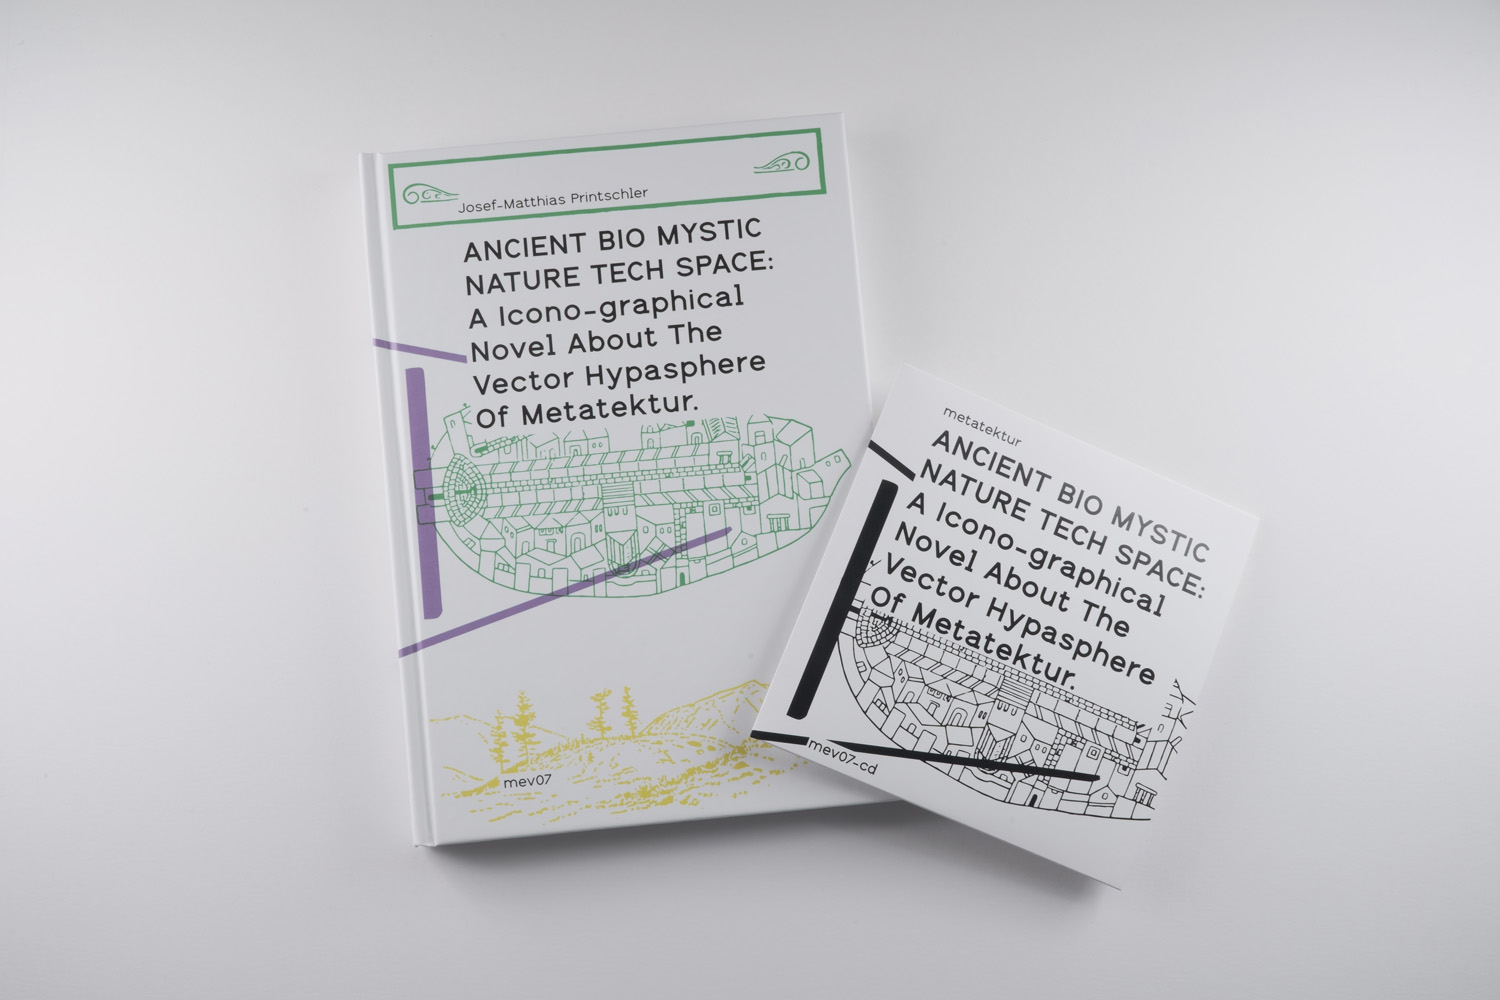 Josef-Matthias Printschler
ANCIENT BIO MYSTIC
NATURE TECH SPACE:
A Icono-graphical
Novel About The
Vector Hypasphere
Of Metatektur.
mev07
metatektur
ANCIENT BIO MYSTIC
NATURE TECH SPACE:
A Icono-graphical
Novel About The
Vector Hypasphere
Of Metatektur.
mev07-cd